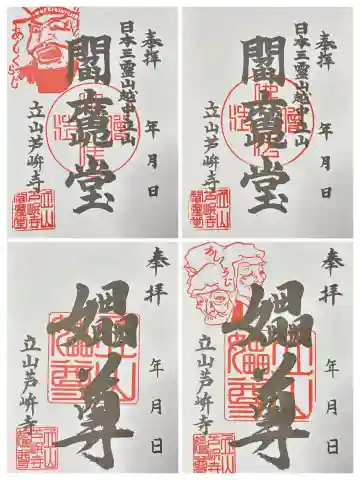 奉拝
日本三霊山越中立山
閻魔堂
立山芦峅寺
年月日
あしくらじ
奉拝
日本三霊山越中立山
閻魔堂
立山芦峅寺
年月日
奉拝
媼尊
立山芦峅寺
年月日
奉拝
媼尊
立山芦峅寺
年月日